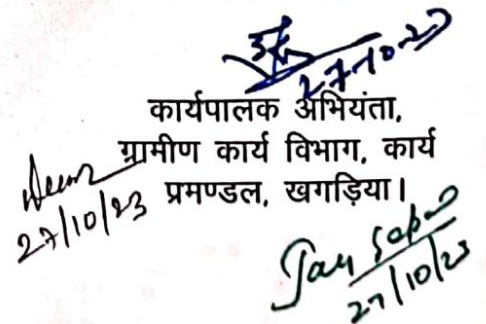 27-10-23
कार्यपालक अभियंता,
ग्रामीण कार्य विभाग, कार्य
प्रमण्डल, खगड़िया।
27/10/23
27/10/23